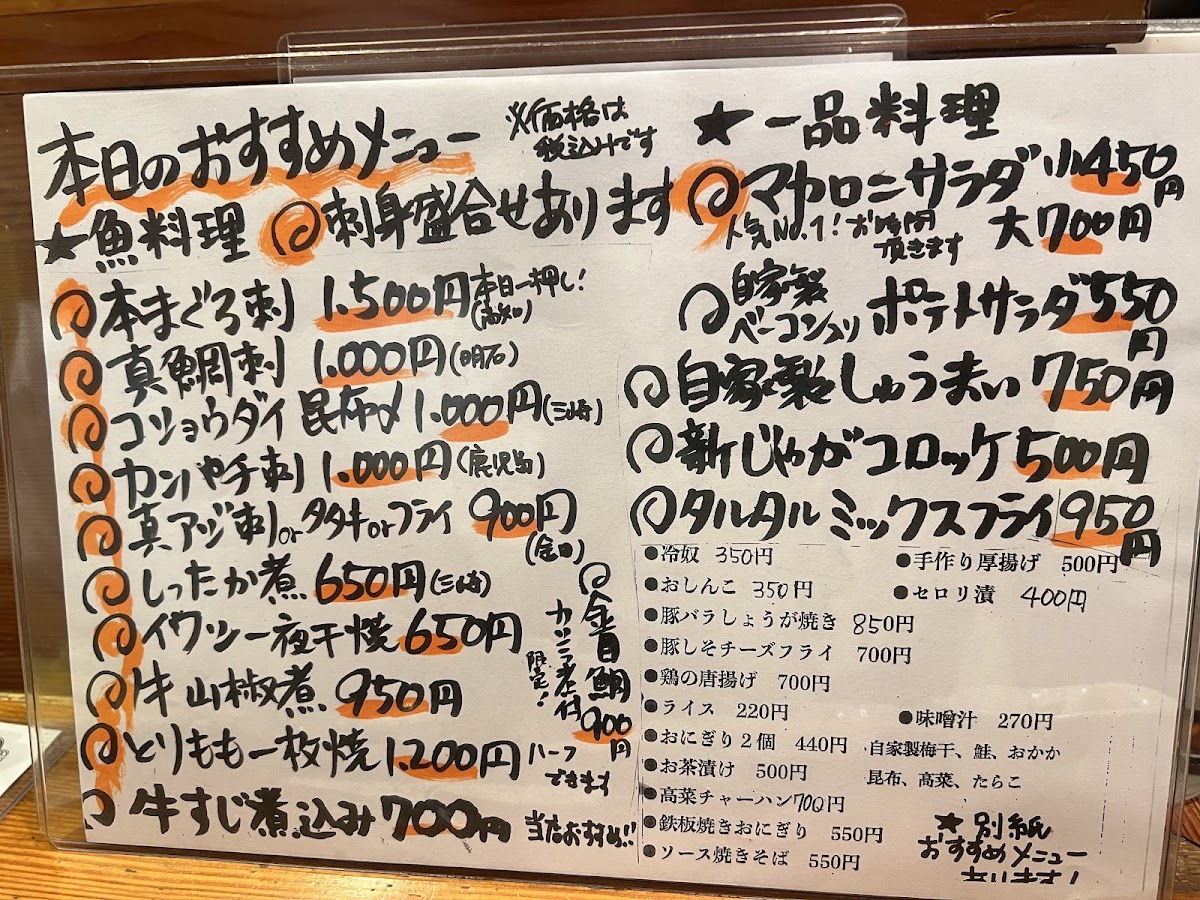 本日のおすすめメニュー
※価格は
税込みです
★魚料理
刺身盛合せあります
本まぐろ刺 1.500円 本日一押し!
(高知)
真鯛刺 1.000円(明石)
コショウダイ 昆布〆 1.000円(三崎)
カンパチ刺 1.000円(鹿児島)
真アジ刺orタタキorフライ 900円
しったか煮 650円(三崎)
イワシ一夜干焼 650円
牛 山椒煮 950円
とりもも一枚焼 1.200円 ハーフ
できます
牛すじ煮込み 700円 当店おすすめ!!
金目鯛
900円
限定!
★一品料理
マカロニサラダ 小450円
大700円
人気No.1! お時間
頂きます
自家製
ベーコン入り ポテトサラダ 550円
自家製しゅうまい 750円
新じゃがコロッケ 500円
タルタルミックスフライ 950円
●冷奴 350円
●手作り厚揚げ 500円
●おしんこ 350円
●セロリ漬 400円
●豚バラしょうが焼き 850円
●豚しそチーズフライ 700円
●鶏の唐揚げ 700円
●ライス 220円
●味噌汁 270円
●おにぎり2個 440円 自家製梅干、鮭、おかか
昆布、高菜、たらこ
●お茶漬け 500円
●高菜チャーハン700円
●鉄板焼きおにぎり 550円
●ソース焼きそば 550円
★別紙
おすすめメニュー